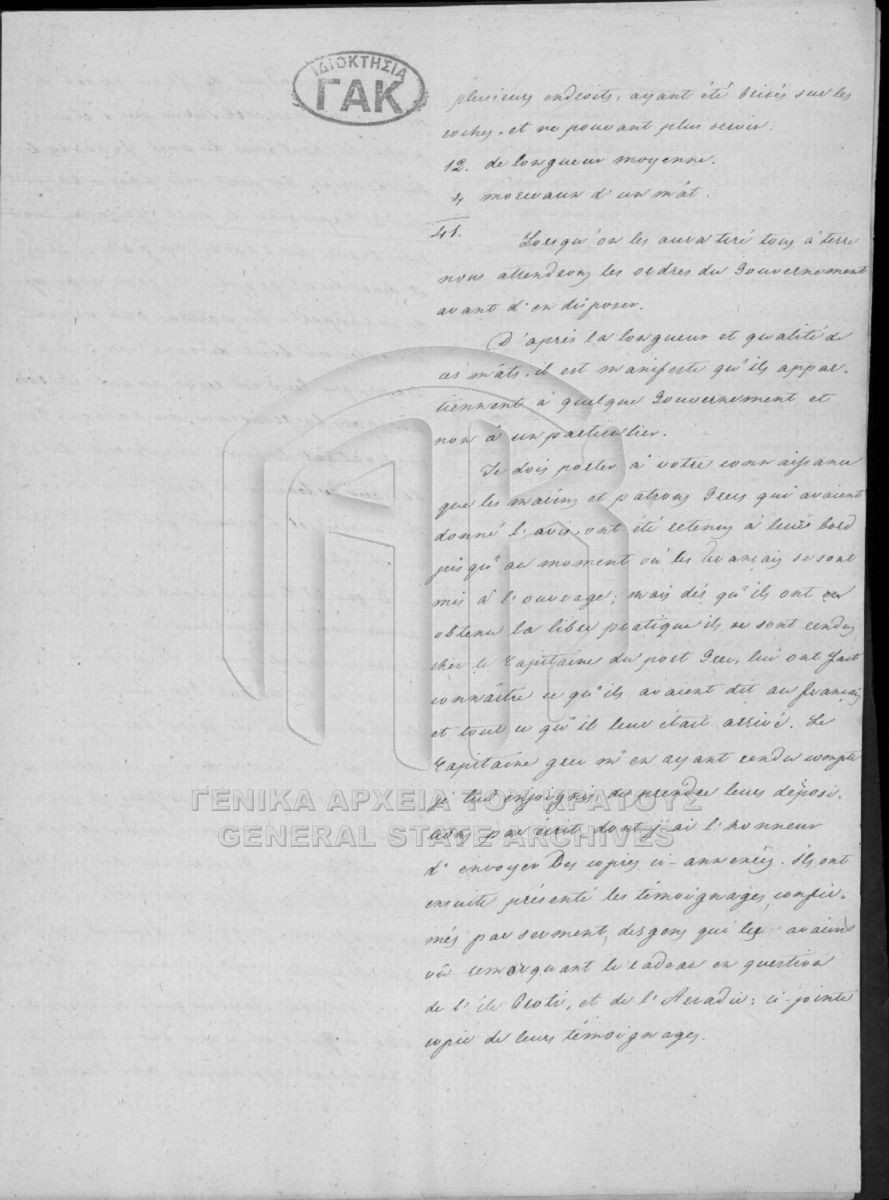 ΙΔΙΟΚΤΗΣΙΑ
ΓΑΚ
plusieurs endroits, ayant été brisés sur les
roches, et ne pouvant plus servir.
12. de longueur moyenne.
4 morceaux d'un mât.
41.
Lorsqu'on les aura tiré tous à terre
nous attendrons les ordres du Gouvernement
avant d'en disposer.
D'après la longueur et qualité de
ces mâts, il est manifeste qu'ils appar-
tiennent à quelque Gouvernement et
non à un particulier.
Je dois porter à votre connaissance
que les marins et patrons Grecs qui avaient
donné l'avis, ont été retenus à leur bord
jusqu'au moment où les Français se sont
mis à l'ouvrage; mais dès qu'ils ont
obtenu la libre pratique ils se sont rendus
chez le Capitaine du port Grec, lui ont fait
connaître ce qu'ils avaient dit au français
et tout ce qu'il leur était arrivé. Le
Capitaine grec m'en ayant rendu compte
je lui enjoignis de prendre leurs déposi-
tions par écrit dont j'ai l'honneur
d'envoyer Des copies ci-annexées. Ils ont
ensuite présenté les témoignages, confir-
més par serment, des gens qui les avaient
vû remorquant le radeau en question
de l'île Proti, et de l'Arcadie; ci-jointe
copie de leurs témoignages.
ΓΕΝΙΚΑ ΑΡΧΕΙΑ ΤΟΥ ΚΡΑΤΟΥΣ
GENERAL STATE ARCHIVES